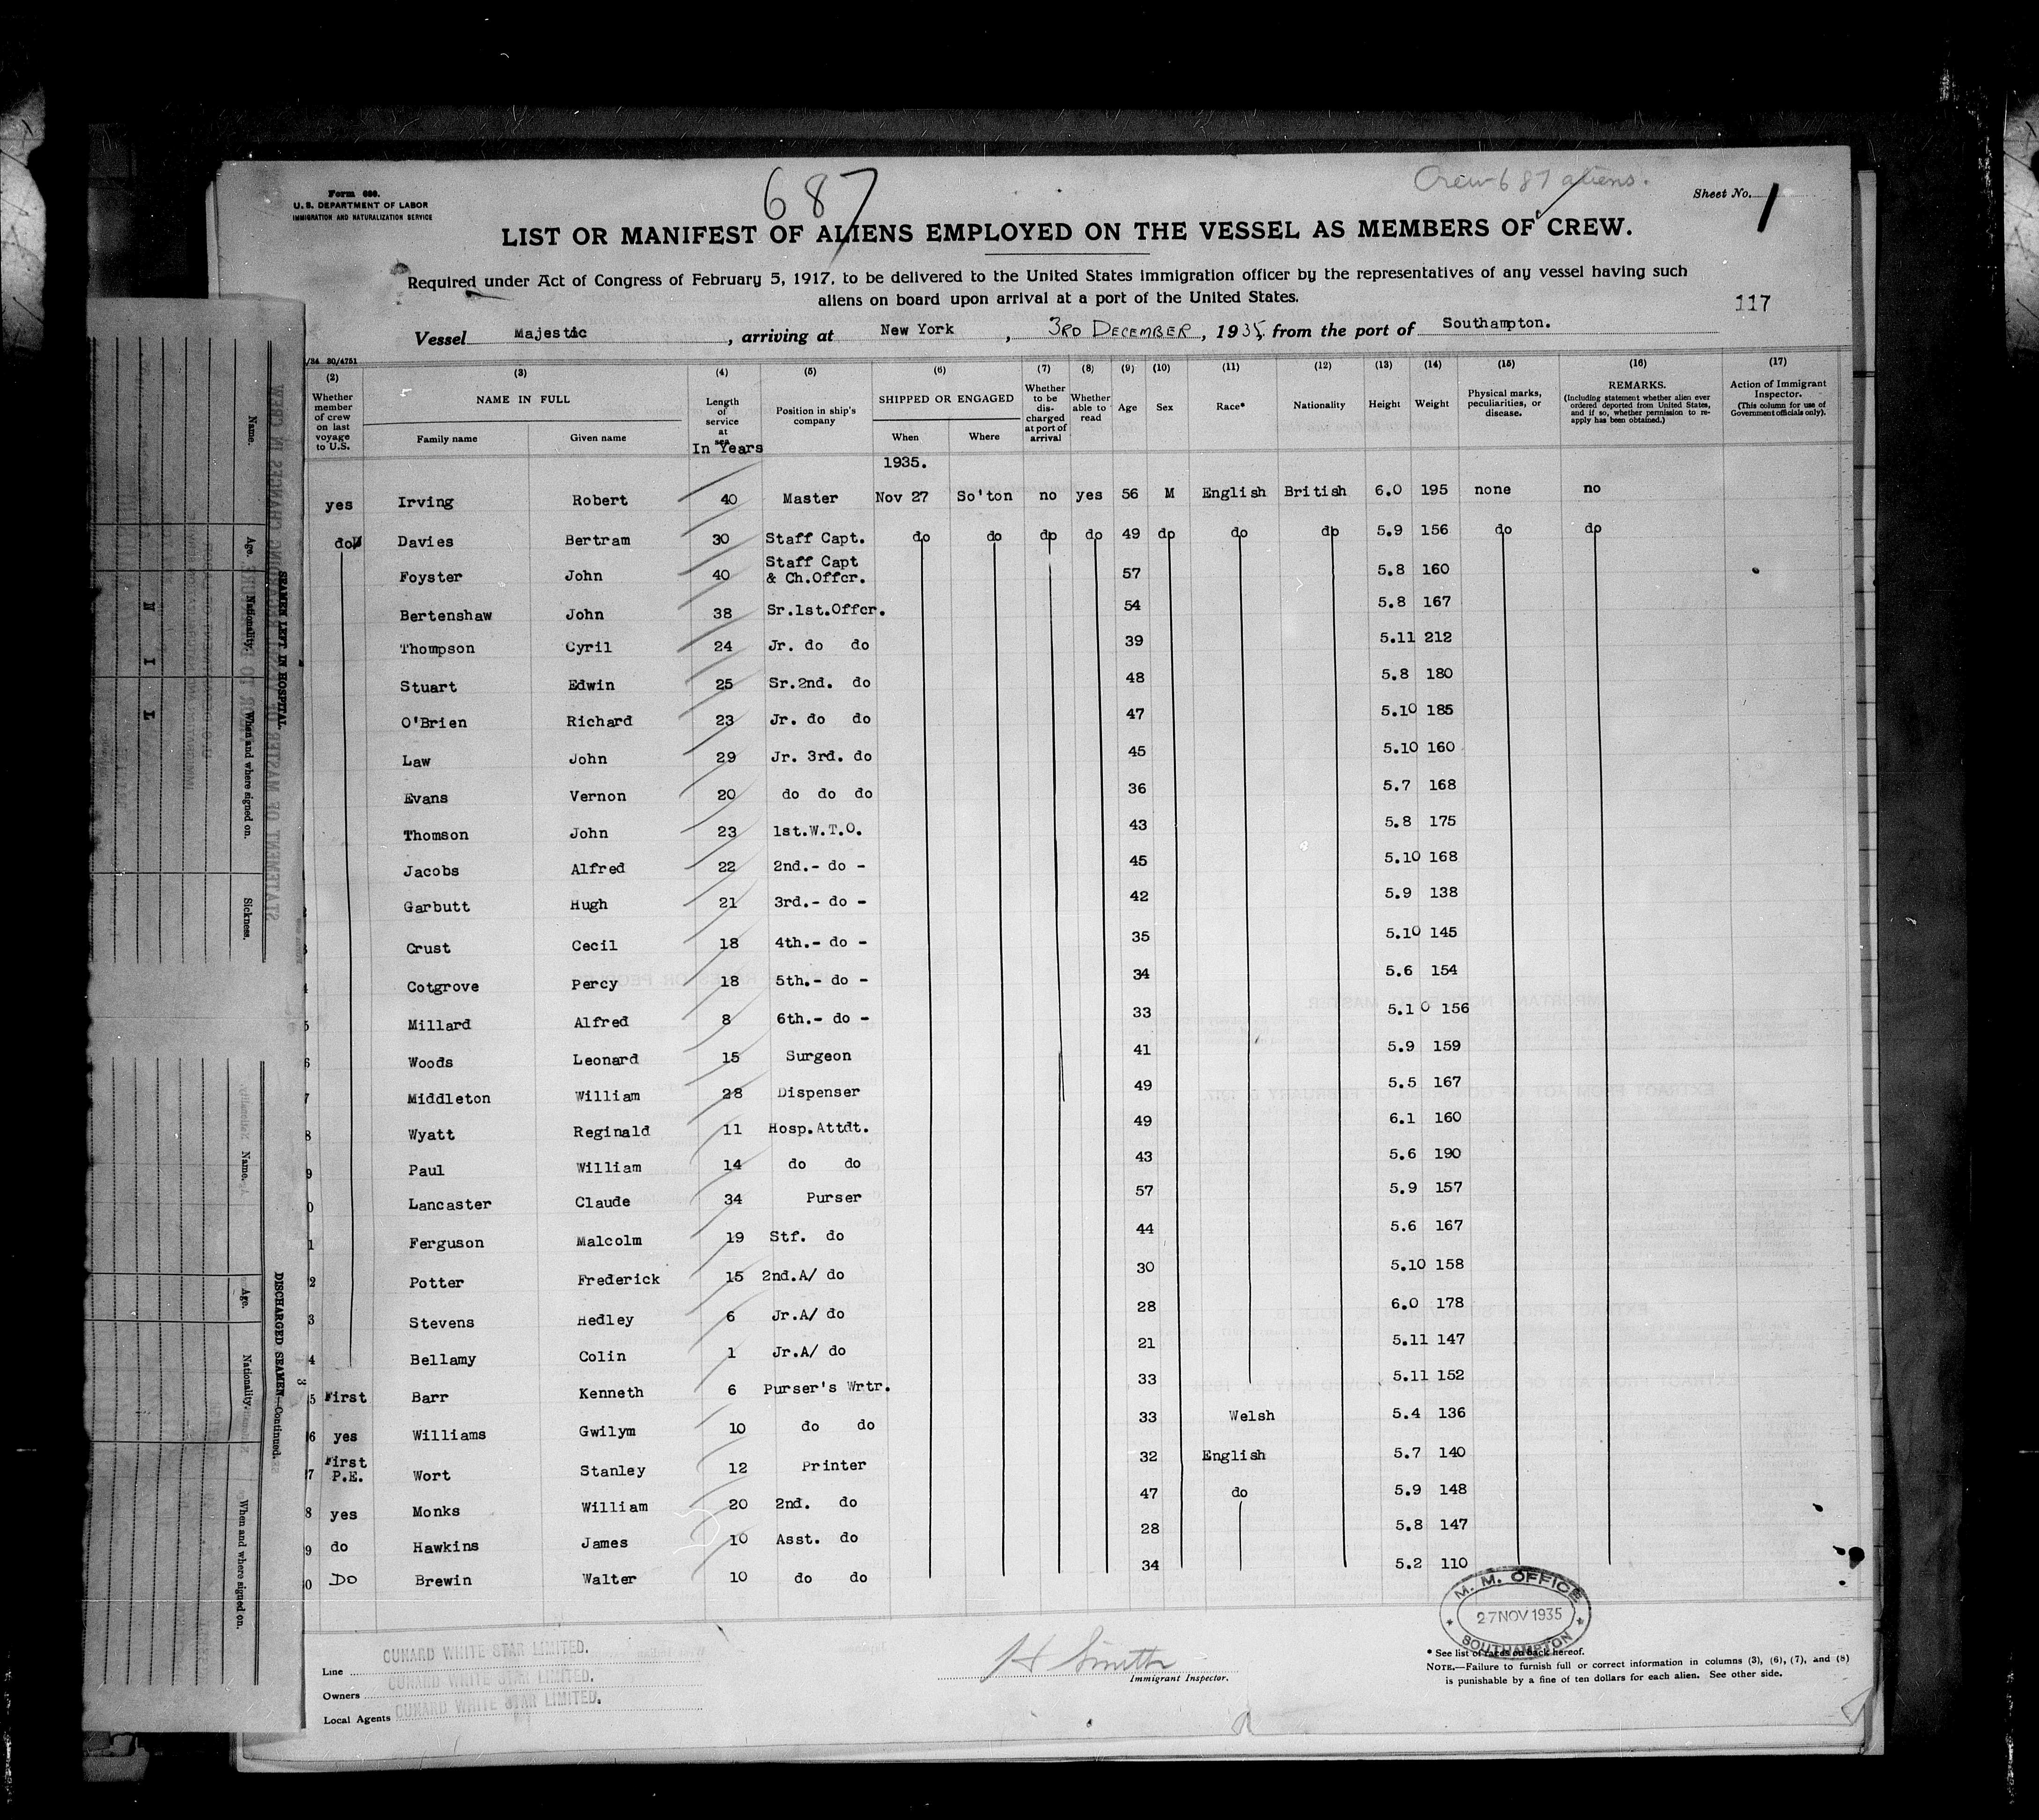 687
Crew 687 aliens.
Form 680.
U. S. DEPARTMENT OF LABOR
IMMIGRATION AND NATURALIZATION SERVICE
Sheet No. 1
LIST OR MANIFEST OF ALIENS EMPLOYED ON THE VESSEL AS MEMBERS OF CREW.
Required under Act of Congress of February 5, 1917, to be delivered to the United States immigration officer by the representatives of any vessel having such
aliens on board upon arrival at a port of the United States.
117
Vessel Majestic, arriving at New York, 3RD DECEMBER, 1935, from the port of Southampton.
(2) (3) (4) (5) (6) (7) (8) (9) (10) (11) (12) (13) (14) (15) (16) (17)
Whether member of crew on last voyage to U.S.
NAME IN FULL
Family name Given name
Length of service at sea
In Years
Position in ship's company
SHIPPED OR ENGAGED
When Where
Whether to be discharged at port of arrival
Whether able to read
Age
Sex
Race*
Nationality
Height
Weight
Physical marks, peculiarities, or disease.
REMARKS.
(Including statement whether alien ever ordered deported from United States, and if so, whether permission to reapply has been obtained.)
Action of Immigrant Inspector.
(This column for use of Government officials only).
1935.
yes Irving Robert 40 Master Nov 27 So'ton no yes 56 M English British 6.0 195 none no
do Davies Bertram 30 Staff Capt. do do do do 49 do do do 5.9 156 do do
Foyster John 40 Staff Capt & Ch.Offcr. 57 5.8 160
Bertenshaw John 38 Sr.1st.Offcr. 54 5.8 167
Thompson Cyril 24 Jr. do do 39 5.11 212
Stuart Edwin 25 Sr.2nd. do 48 5.8 180
O'Brien Richard 23 Jr. do do 47 5.10 185
Law John 29 Jr. 3rd. do 45 5.10 160
Evans Vernon 20 do do do 36 5.7 168
Thomson John 23 1st.W.T.O. 43 5.8 175
Jacobs Alfred 22 2nd.- do - 45 5.10 168
Garbutt Hugh 21 3rd.- do - 42 5.9 138
Crust Cecil 18 4th.- do - 35 5.10 145
Cotgrove Percy 18 5th.- do - 34 5.6 154
Millard Alfred 8 6th.- do - 33 5.10 156
Woods Leonard 15 Surgeon 41 5.9 159
Middleton William 28 Dispenser 49 5.5 167
Wyatt Reginald 11 Hosp.Attdt. 49 6.1 160
Paul William 14 do do 43 5.6 190
Lancaster Claude 34 Purser 57 5.9 157
Ferguson Malcolm 19 Stf. do 44 5.6 167
Potter Frederick 15 2nd.A/ do 30 5.10 158
Stevens Hedley 6 Jr.A/ do 28 6.0 178
Bellamy Colin 1 Jr.A/ do 21 5.11 147
First Barr Kenneth 6 Purser's Wrtr. 33 5.11 152
yes Williams Gwilym 10 do do 33 Welsh 5.4 136
First P.E. Wort Stanley 12 Printer 32 English 5.7 140
yes Monks William 20 2nd. do 47 do 5.9 148
do Hawkins James 10 Asst. do 28 5.8 147
Do Brewin Walter 10 do do 34 5.2 110
M. M. OFFICE
27 NOV 1935
SOUTHAMPTON
Line CUNARD WHITE STAR LIMITED.
Owners CUNARD WHITE STAR LIMITED.
Local Agents CUNARD WHITE STAR LIMITED.
H Smith
Immigrant Inspector.
* See list of races on back hereof.
NOTE.—Failure to furnish full or correct information in columns (3), (6), (7), and (8)
is punishable by a fine of ten dollars for each alien. See other side.
SEAMEN LEFT IN HOSPITAL
Name. Age. Nationality. When and where signed on. Sickness.
N I L
DISCHARGED SEAMEN—Continued.
Name. Age. Nationality. When and where signed on.